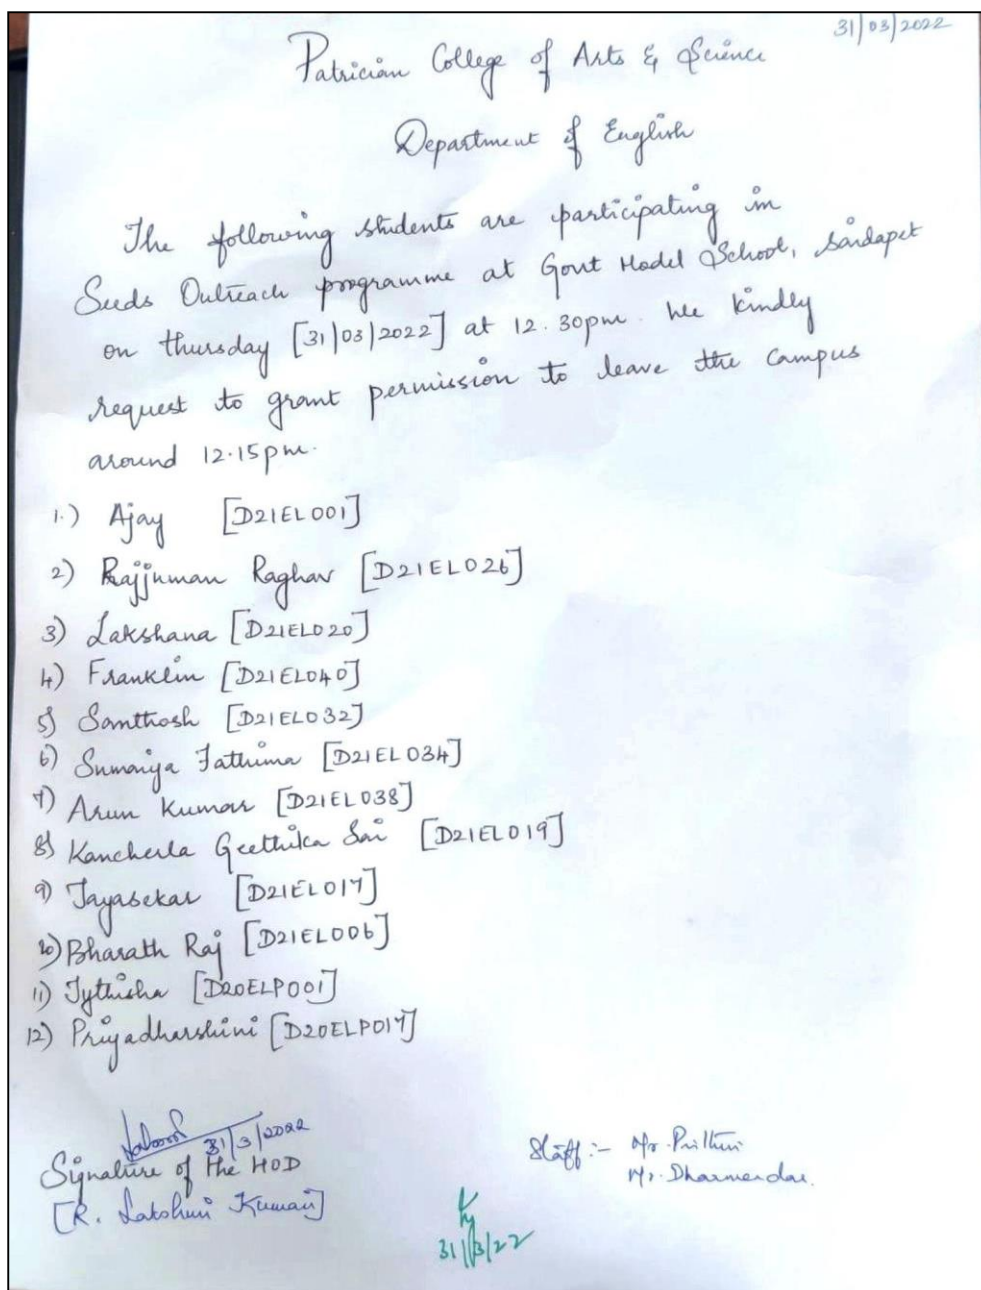 31/03/2022
Patrician College of Arts & Science
Department of English
The following students are participating in
Seeds Outreach programme at Govt Model School, Saidapet
on thursday [31/03/2022] at 12.30pm. We kindly
request to grant permission to leave the campus
around 12.15pm.
1.) Ajay [D21EL001]
2) Rajjuman Raghav [D21EL026]
3) Lakshana [D21EL020]
4) Franklin [D21EL040]
5) Santhosh [D21EL032]
6) Sumaiya Fathima [D21EL034]
7) Arun Kumar [D21EL038]
8) Kancherla Geethika Sai [D21EL019]
9) Jayasekar [D21EL017]
10) Bharath Raj [D21EL006]
11) Jythisha [D20ELP001]
12) Priyadharshini [D20ELP017]
31/3/2022
Signature of the HOD
[R. Lakshmi Kumari]
Staff :- Mr. Prithvi
Mr. Dharmendar.
31/3/22